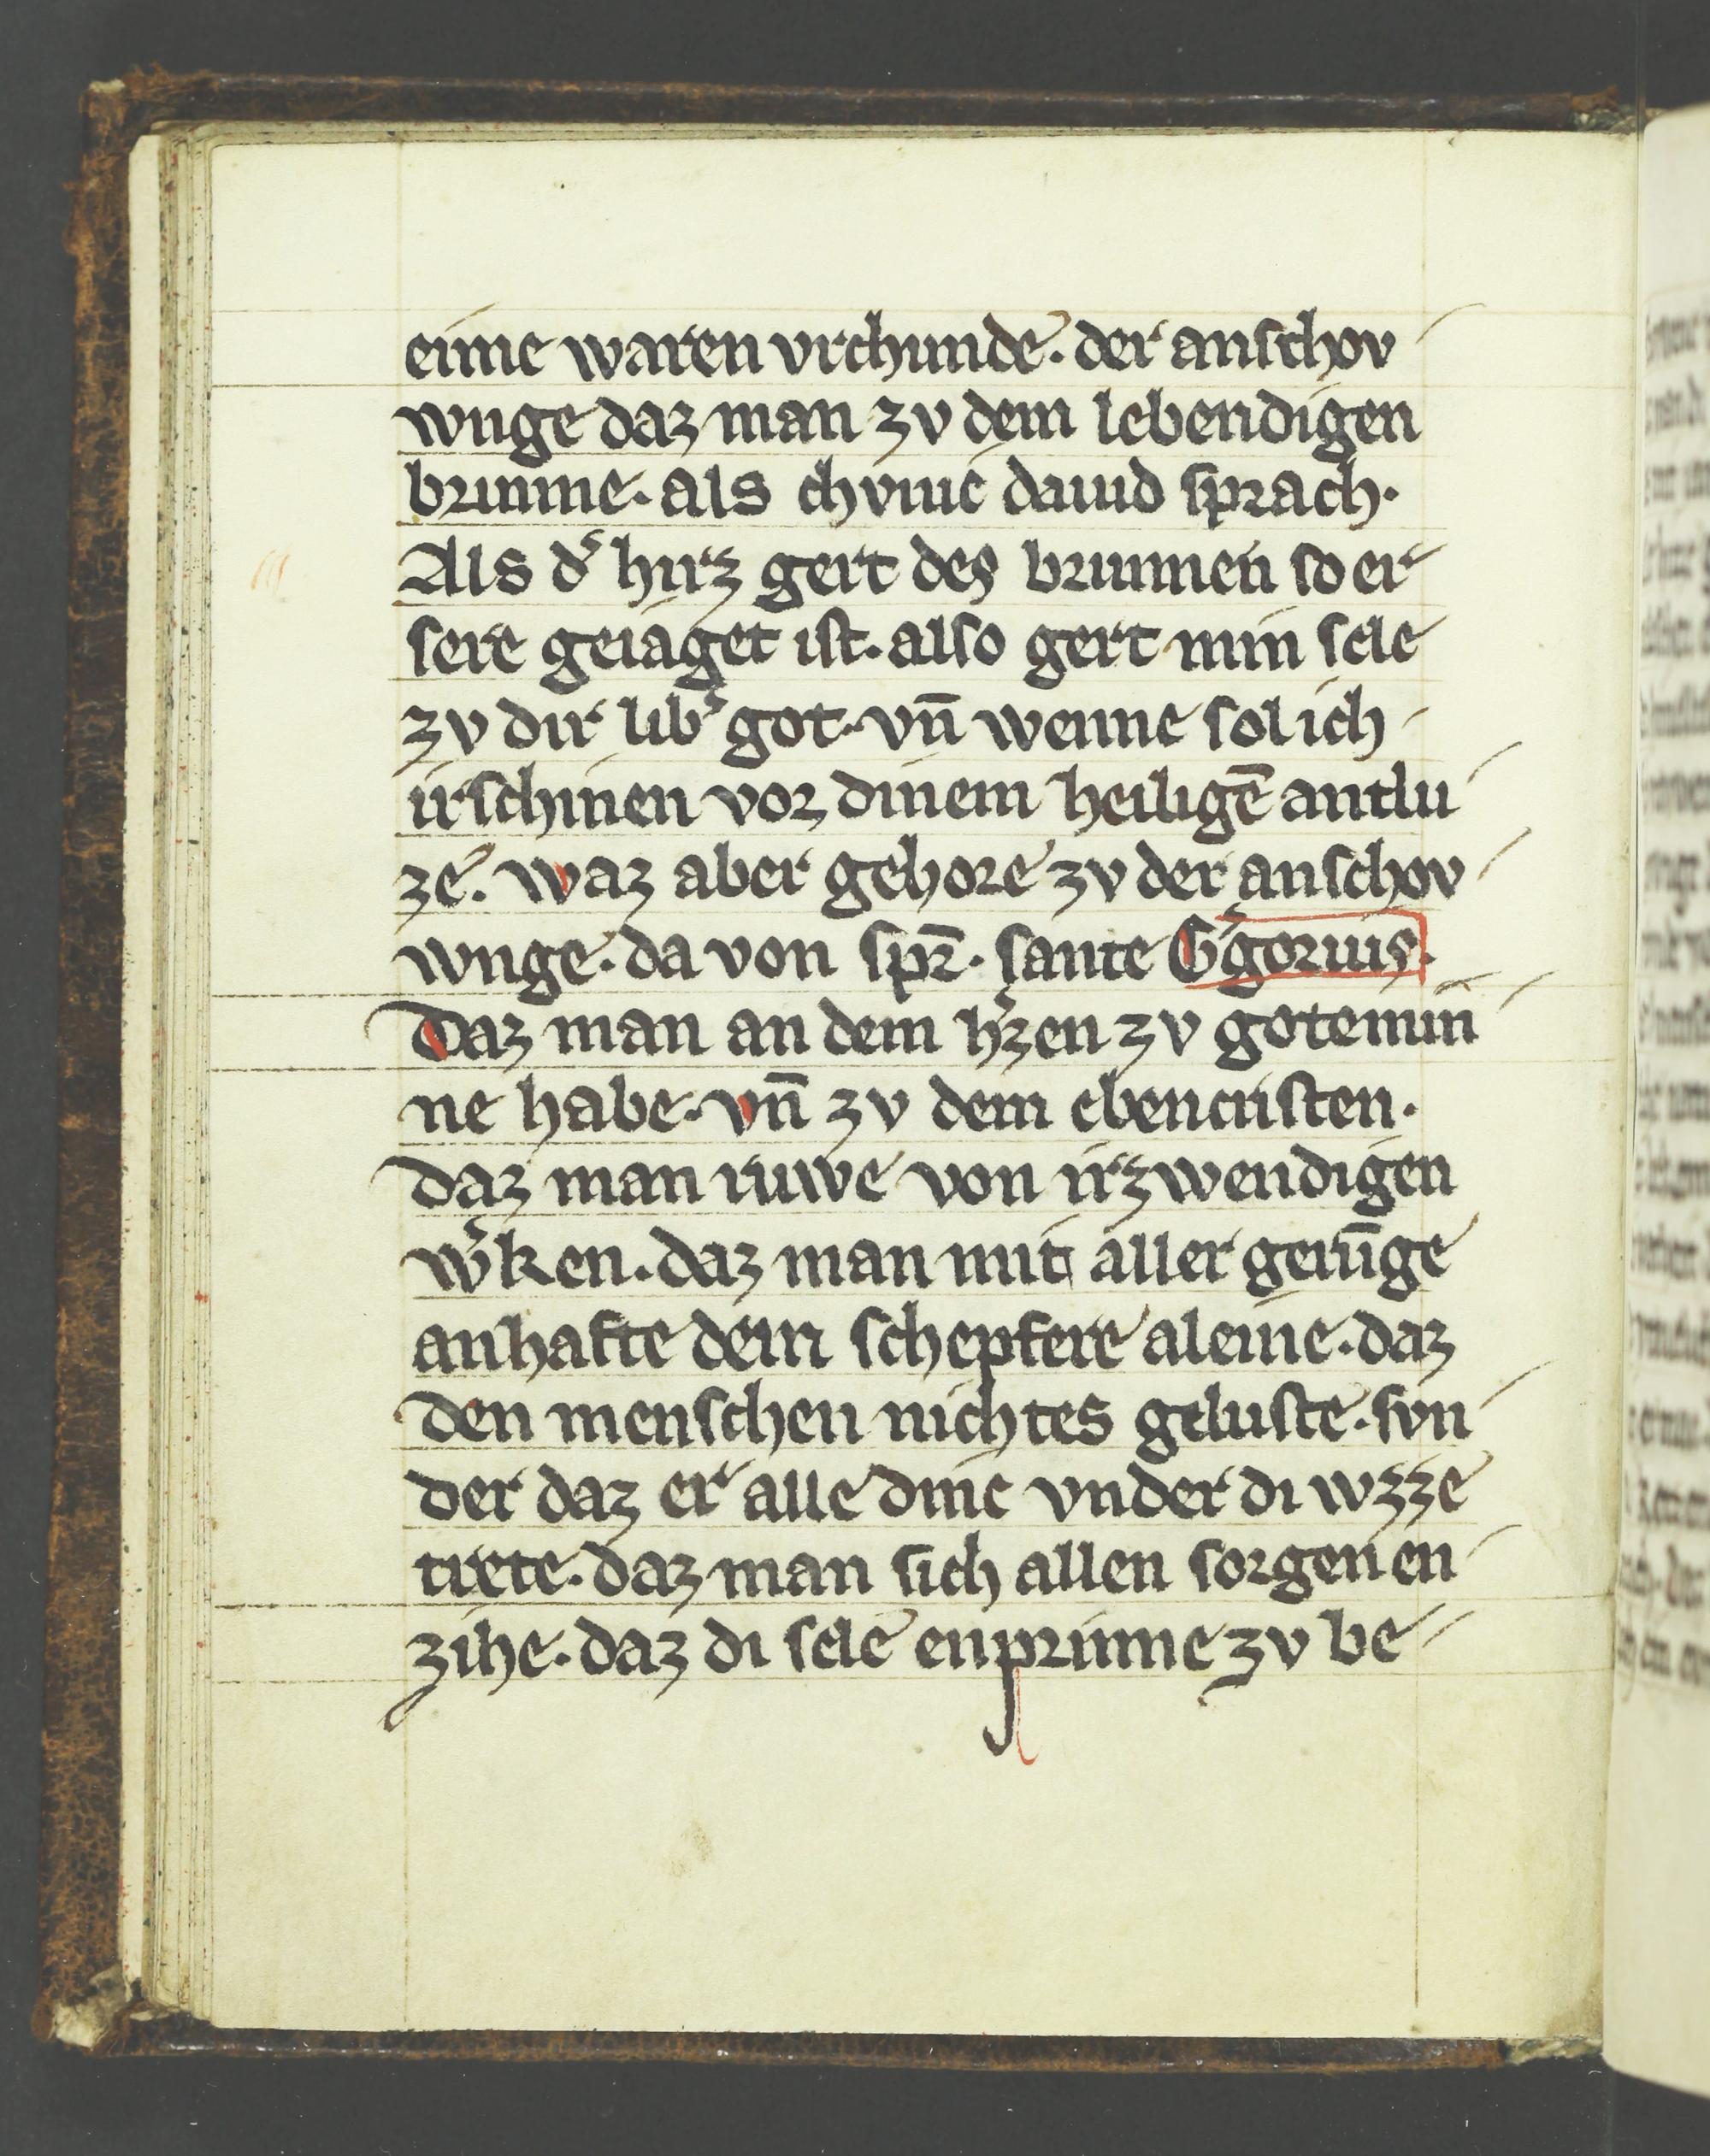 eime waren vrchunde. der anschov
wnge daz man zv dem lebendigen
brunne. als chvnic dauid sprach.
Als dˢ hirz gert des brunnen so er
sere geiaget ist. also gert min sele
zv dir libˢ got. vn̄ wenne sol ich
irschinen vor dinem heiligē antlu
ze. Waz aber gehore zv der anschov
wnge. da von spr̄. sante Gˢgorius.
Daz man an dem hˢzen zv gote min
ne habe. vn̄ zv dem ebencristen.
Daz man ruwe von irzwendigen
wˢken. daz man mit aller gerūge
anhafte dem schepfere aleine. daz
den menschen nichtes geluste. svn
der daz er alle dinc vnder di wzze
trete. daz man sich allen sorgen en
zihe. daz di sele enprinne zv be